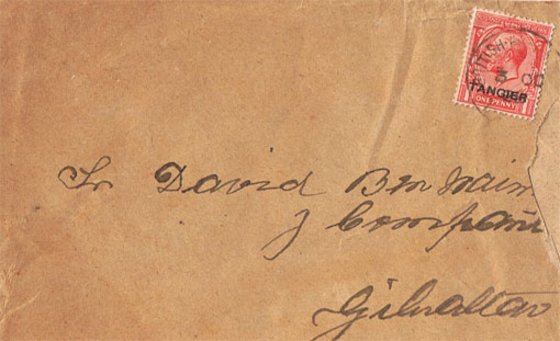 BRITISH
3 OC
TANGIER
ONE PENNY
Sr David Ben Naim
y Compañia
Gibraltar